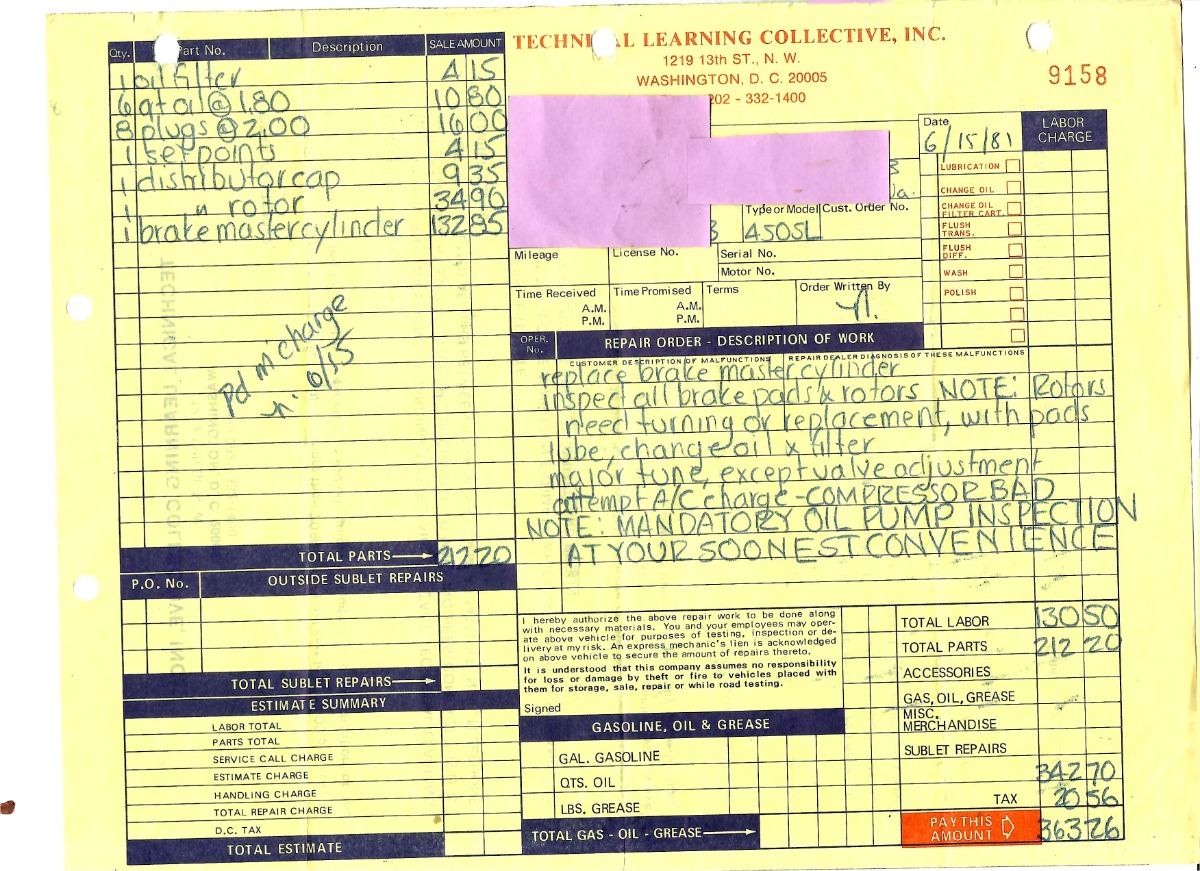 Qty. Part No. Description SALE AMOUNT
1 oil filter 4 15
6 qt oil @ 1.80 10 80
8 plugs @ 2.00 16 00
1 set points 4 15
1 distributor cap 9 35
1 " rotor 34 90
1 brake master cylinder 132 85
Pd m' charge
TOTAL PARTS 212 20
P.O. No. OUTSIDE SUBLET REPAIRS
TOTAL SUBLET REPAIRS
ESTIMATE SUMMARY
LABOR TOTAL
PARTS TOTAL
SERVICE CALL CHARGE
ESTIMATE CHARGE
HANDLING CHARGE
TOTAL REPAIR CHARGE
D.C. TAX
TOTAL ESTIMATE
TECHNICAL LEARNING COLLECTIVE, INC.
1219 13th ST., N. W.
WASHINGTON, D. C. 20005
202 - 332-1400
9158
Date
6/15/81
LABOR CHARGE
LUBRICATION
CHANGE OIL
CHANGE OIL FILTER CART.
FLUSH TRANS.
FLUSH DIFF.
WASH
POLISH
Type or Model Cust. Order No.
450SL
Mileage License No. Serial No.
Motor No.
Time Received Time Promised Terms Order Written By
A.M. A.M.
P.M. P.M.
OPER. No. REPAIR ORDER - DESCRIPTION OF WORK
CUSTOMER DESCRIPTION OF MALFUNCTIONS REPAIR DEALER DIAGNOSIS OF THESE MALFUNCTIONS
replace brake master cylinder
inspect all brake pads & rotors NOTE: Rotors
need turning or replacement, with pads
lube, change oil & filter
major tune, except valve adjustment
attempt A/C charge - COMPRESSOR BAD
NOTE: MANDATORY OIL PUMP INSPECTION
AT YOUR SOONEST CONVENIENCE
I hereby authorize the above repair work to be done along
with necessary materials. You and your employees may oper-
ate above vehicle for purposes of testing, inspection or de-
livery at my risk. An express mechanic's lien is acknowledged
on above vehicle to secure the amount of repairs thereto.
It is understood that this company assumes no responsibility
for loss or damage by theft or fire to vehicles placed with
them for storage, sale, repair or while road testing.
Signed
GASOLINE, OIL & GREASE
GAL. GASOLINE
QTS. OIL
LBS. GREASE
TOTAL GAS - OIL - GREASE
TOTAL LABOR 130 50
TOTAL PARTS 212 20
ACCESSORIES
GAS, OIL, GREASE
MISC. MERCHANDISE
SUBLET REPAIRS
342 70
TAX 20 56
PAY THIS AMOUNT 363 26